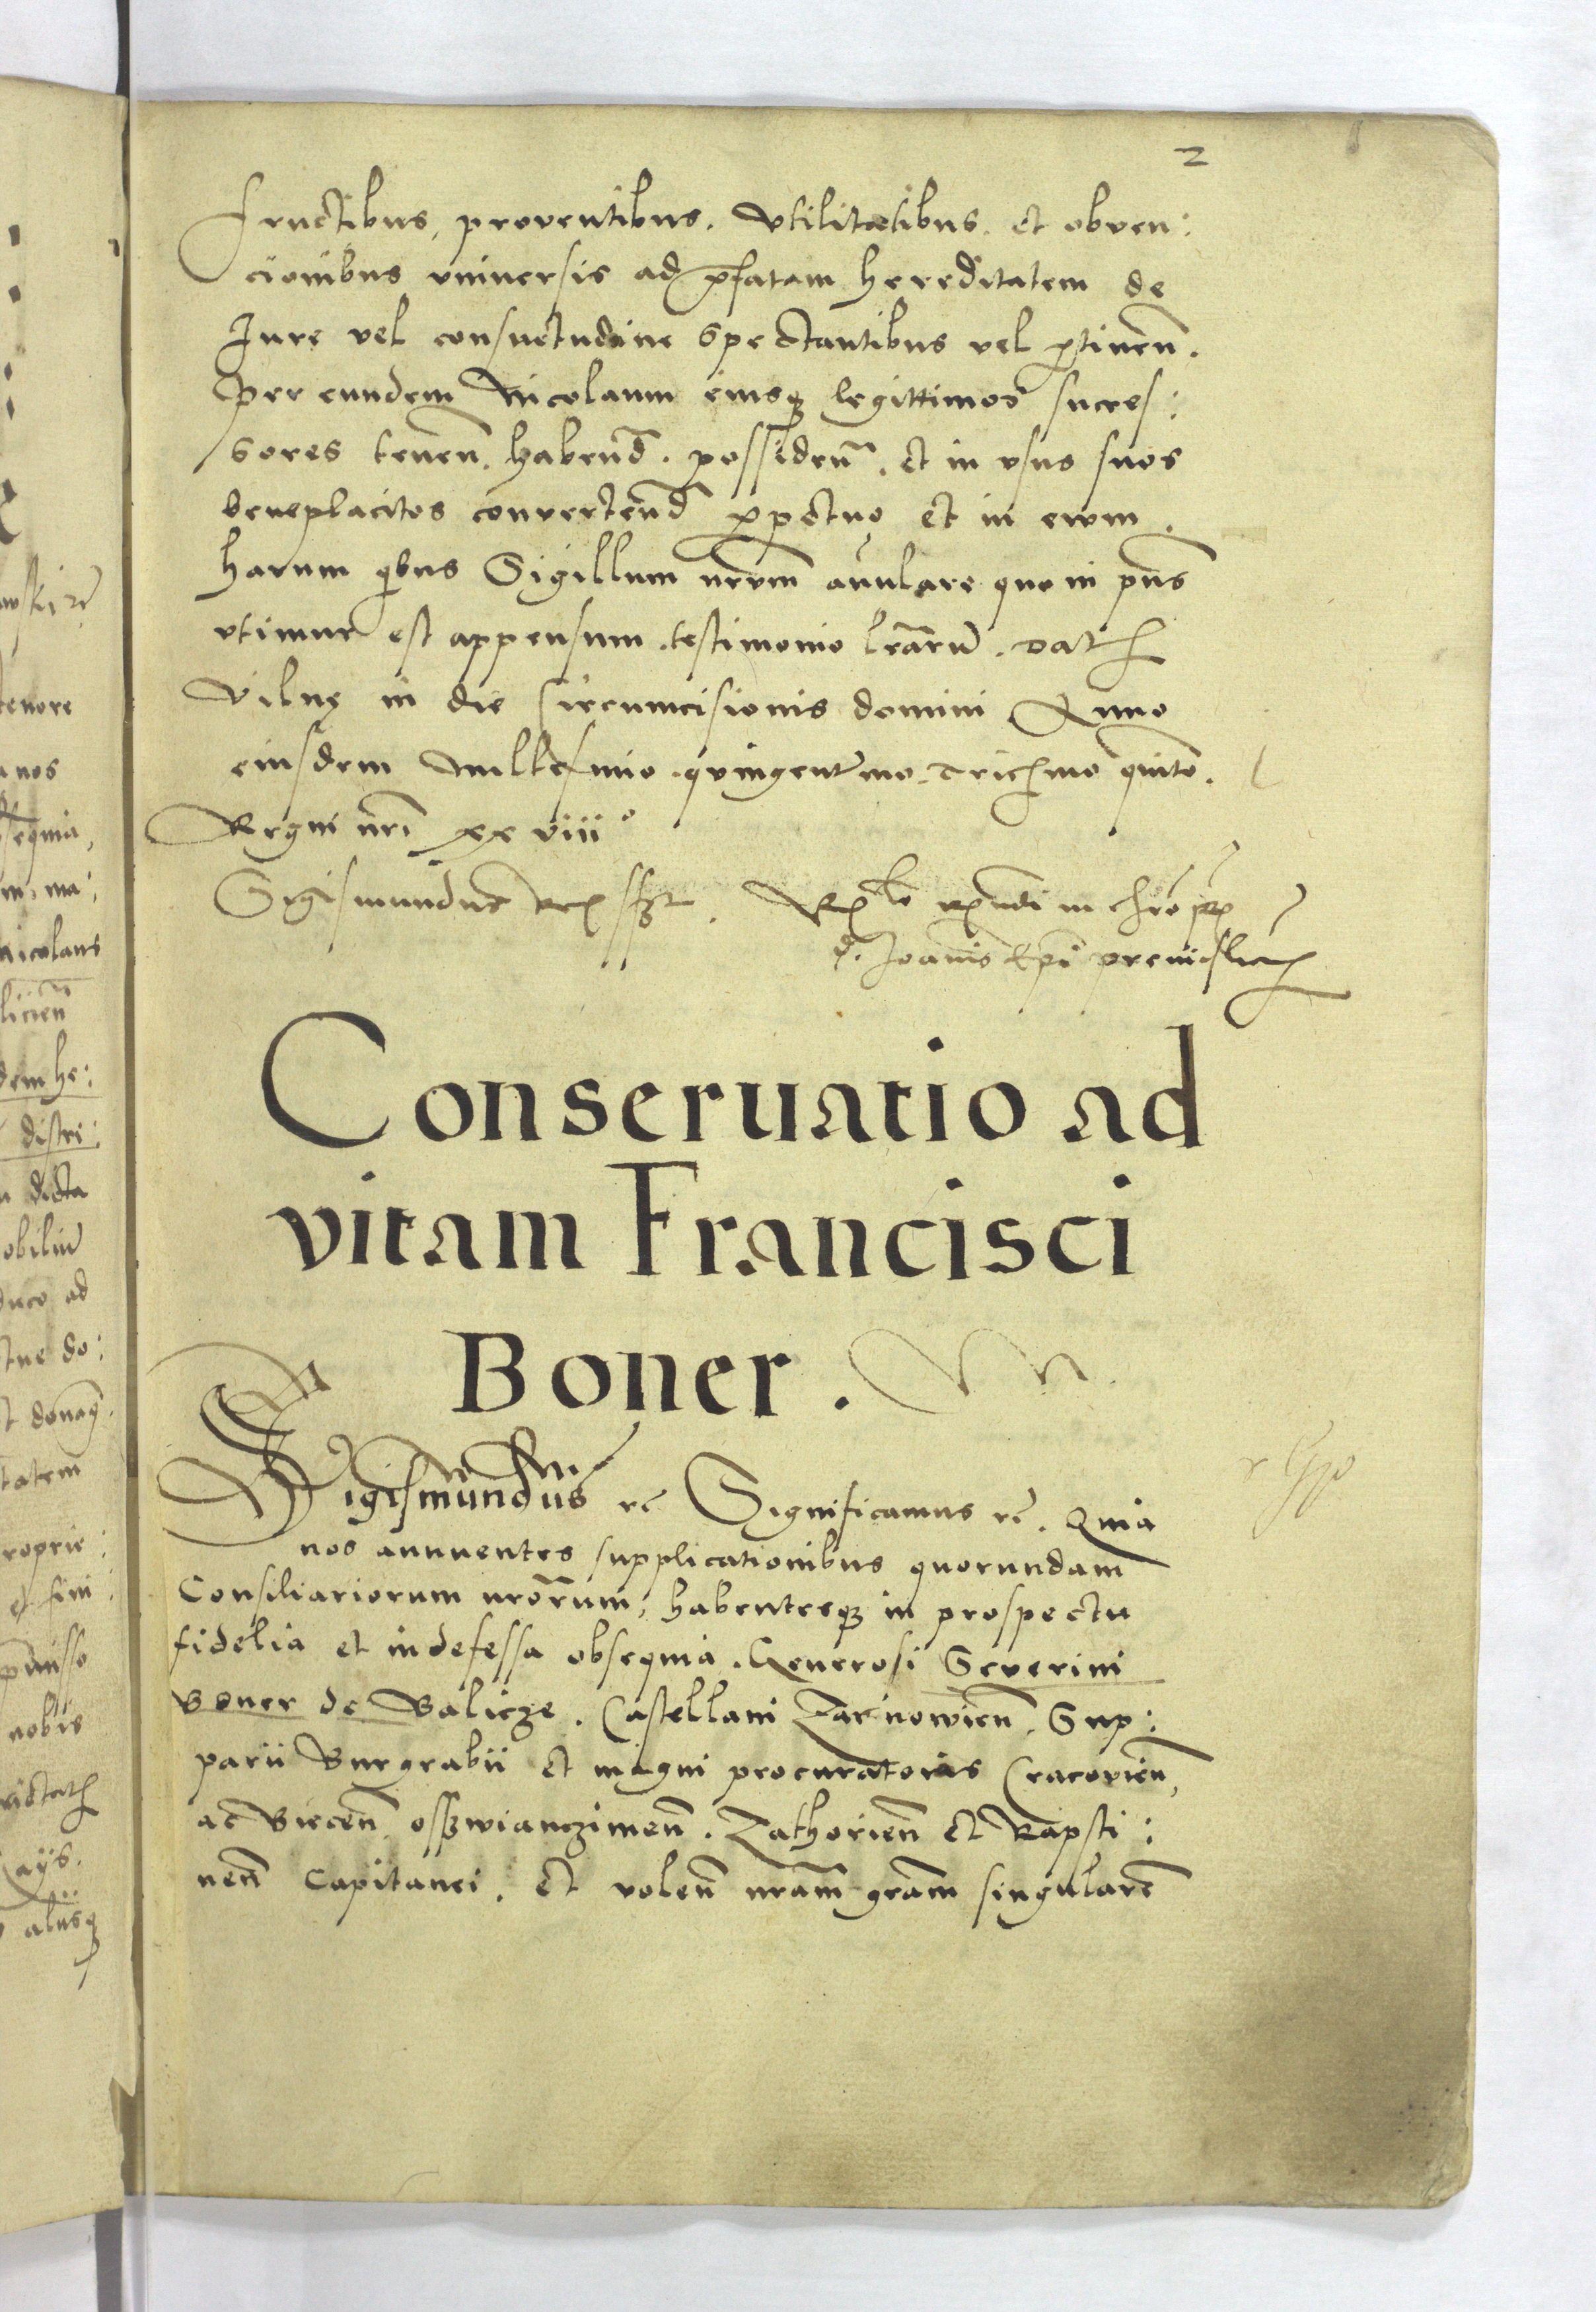 2
fructibus, proventibus. Vtilitatibus. et obven:
cionibus vniuersis ad p̃fatam hereditatem de
Iure vel consuetudine spectantibus vel ꝑtineñ.
per eundem Nicolaum eiusqꝫ legittimos succes:
sores teneñ. habend̃. possideñ. et in vsus suos
beneplacitos convertend̃ ꝑpetuo et in ewm.
harum qibus Sigillum nr̃vm anulare quo in pñs
vtimur est appensum. testimonio lr̃arũ. Dat
Vilnę in die Circumcisionis domini Anno
eiusdem millesimo. quingentmo. tricesmo quito.
Regni nr̃i xx viii°
Sigismundus Rex sszt. Rlo Rndi in chr̃o pr̃
d. Ioanis Ep̃i premislien
Conseruatio ad
vitam Francisci
Boner.
Sigismundus rc̃ Significamus rc̃. Quia
nos annuentes supplicationibus quorundam
Consiliariorum nr̃orum, habentesqꝫ in prospectu
fidelia et indefessa obsequia. Generosi Severini
Boner de Balicze. Castellani Zarnowieñ. Sup:
parii Burgrabii et magni procuratoris Cracovieñ,
ac Bieceñ osszwianczimeñ. Zathorieñ et Rapsti:
neñ Capitanei. et voleñ nr̃am gr̃am singularẽ